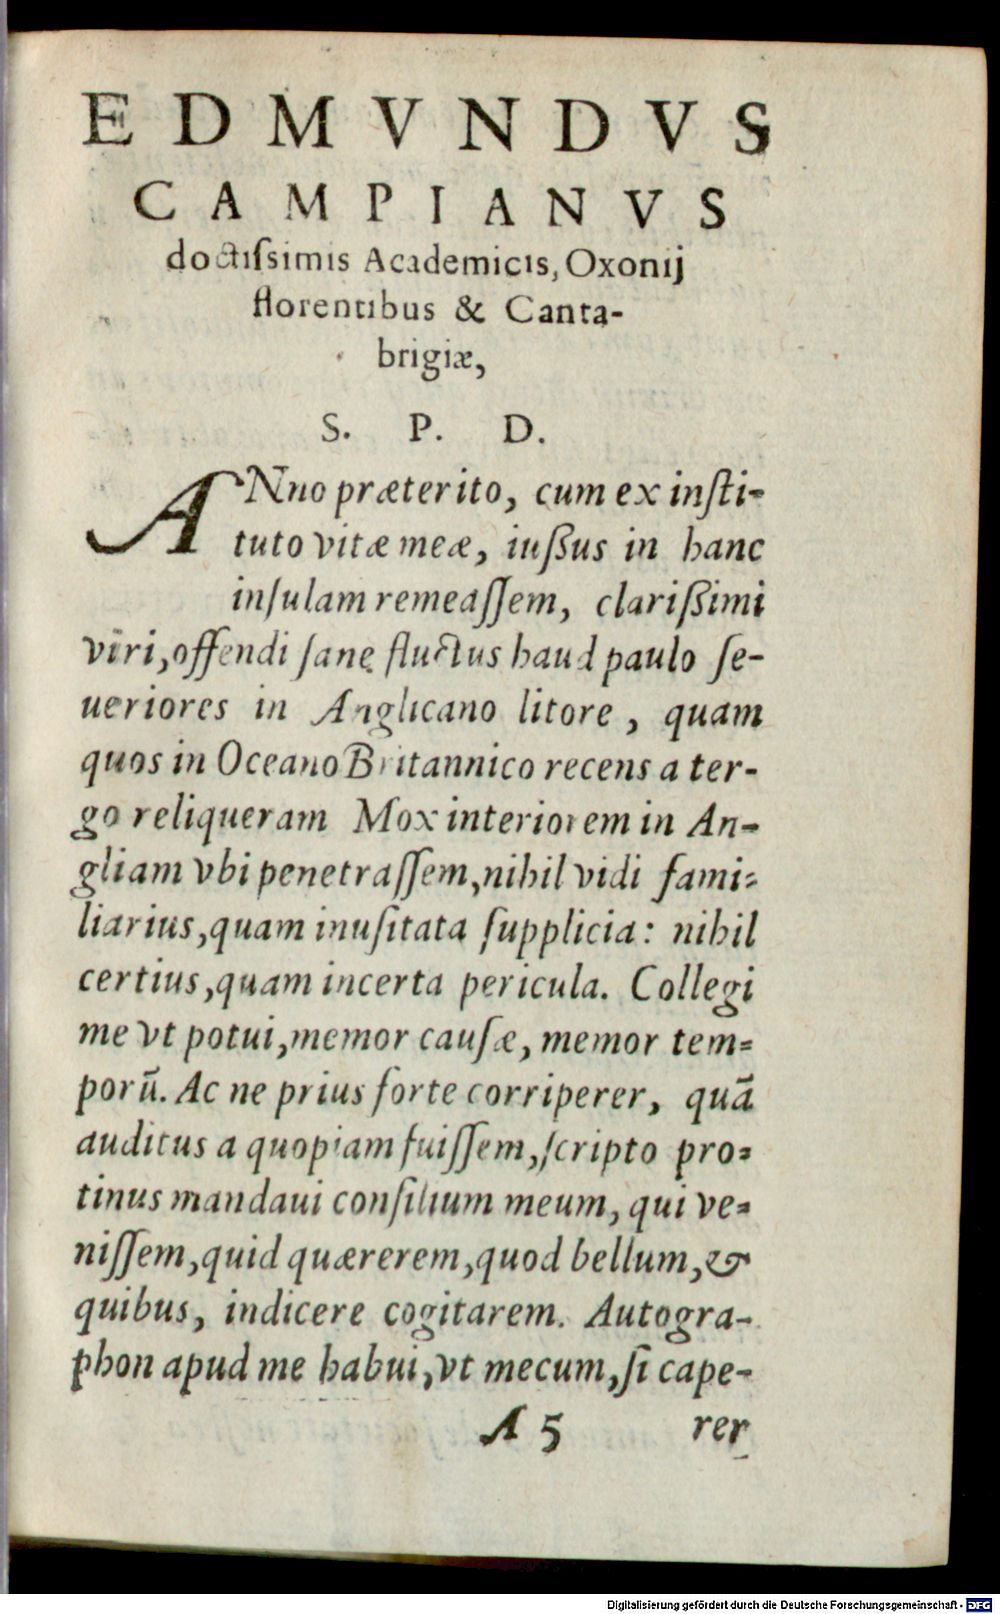 EDMVNDVS
CAMPIANVS
doctiſsimis Academicis, Oxonij
florentibus & Canta-
brigiæ,
S. P. D.
ANno præterito, cum ex inſti-
tuto vitæ meæ, iußus in hanc
inſulam remeaſſem, clarißimi
viri, offendi ſane fluctus haud paulo ſe-
ueriores in Anglicano litore, quam
quos in Oceano Britannico recens a ter-
go reliqueram Mox interiorem in An-
gliam vbi penetraſſem, nihil vidi fami-
liarius, quam inuſitata ſupplicia: nihil
certius, quam incerta pericula. Collegi
me vt potui, memor cauſæ, memor tem-
porū. Ac ne prius forte corriperer, quā
auditus a quopiam fuiſſem, ſcripto pro-
tinus mandaui conſilium meum, qui ve-
niſſem, quid quærerem, quod bellum, &
quibus, indicere cogitarem. Autogra-
phon apud me habui, vt mecum, ſi cape-
A 5 rer
Digitalisierung gefördert durch die Deutsche Forschungsgemeinschaft - DFG